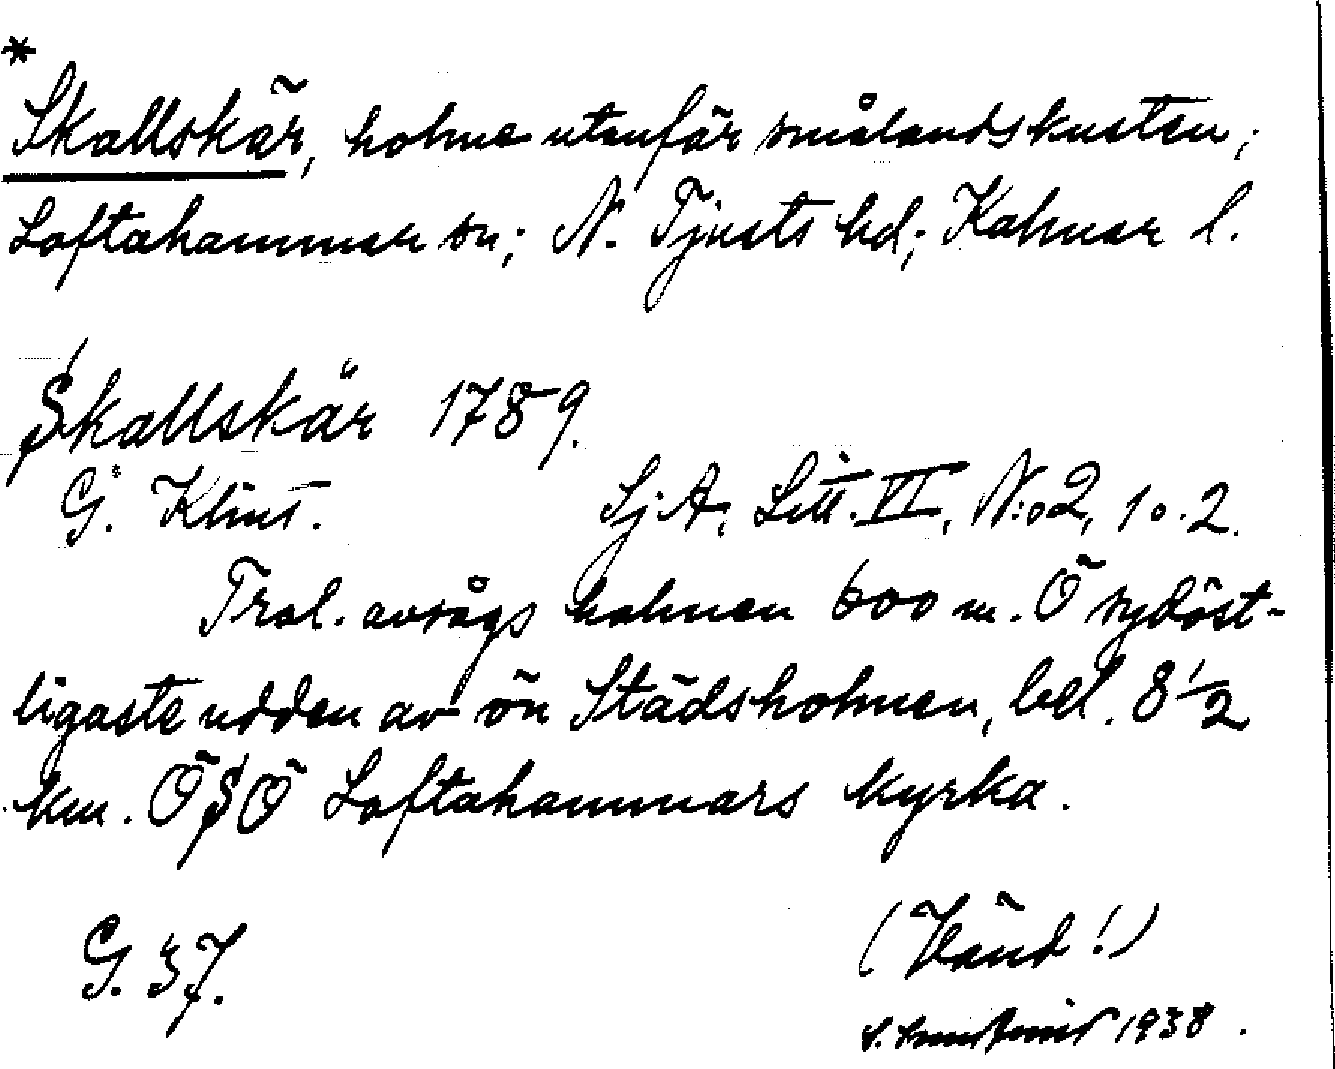 *
Skallskär, holme utanför smålandskusten;
Loftahammar sn; N. Tjusts hd; Kalmar l.
Skallskär 1789.
G. Klint. SjA, Litt. VI, N:o 2, 1 o. 2.
Trol. avsågs holmen 600 m. Ö sydöst-
ligaste udden av ön Städsholmen, bel. 8 1/2
km. ÖSÖ Loftahammars kyrka.
G. 37.
(Vänd!)
1938.